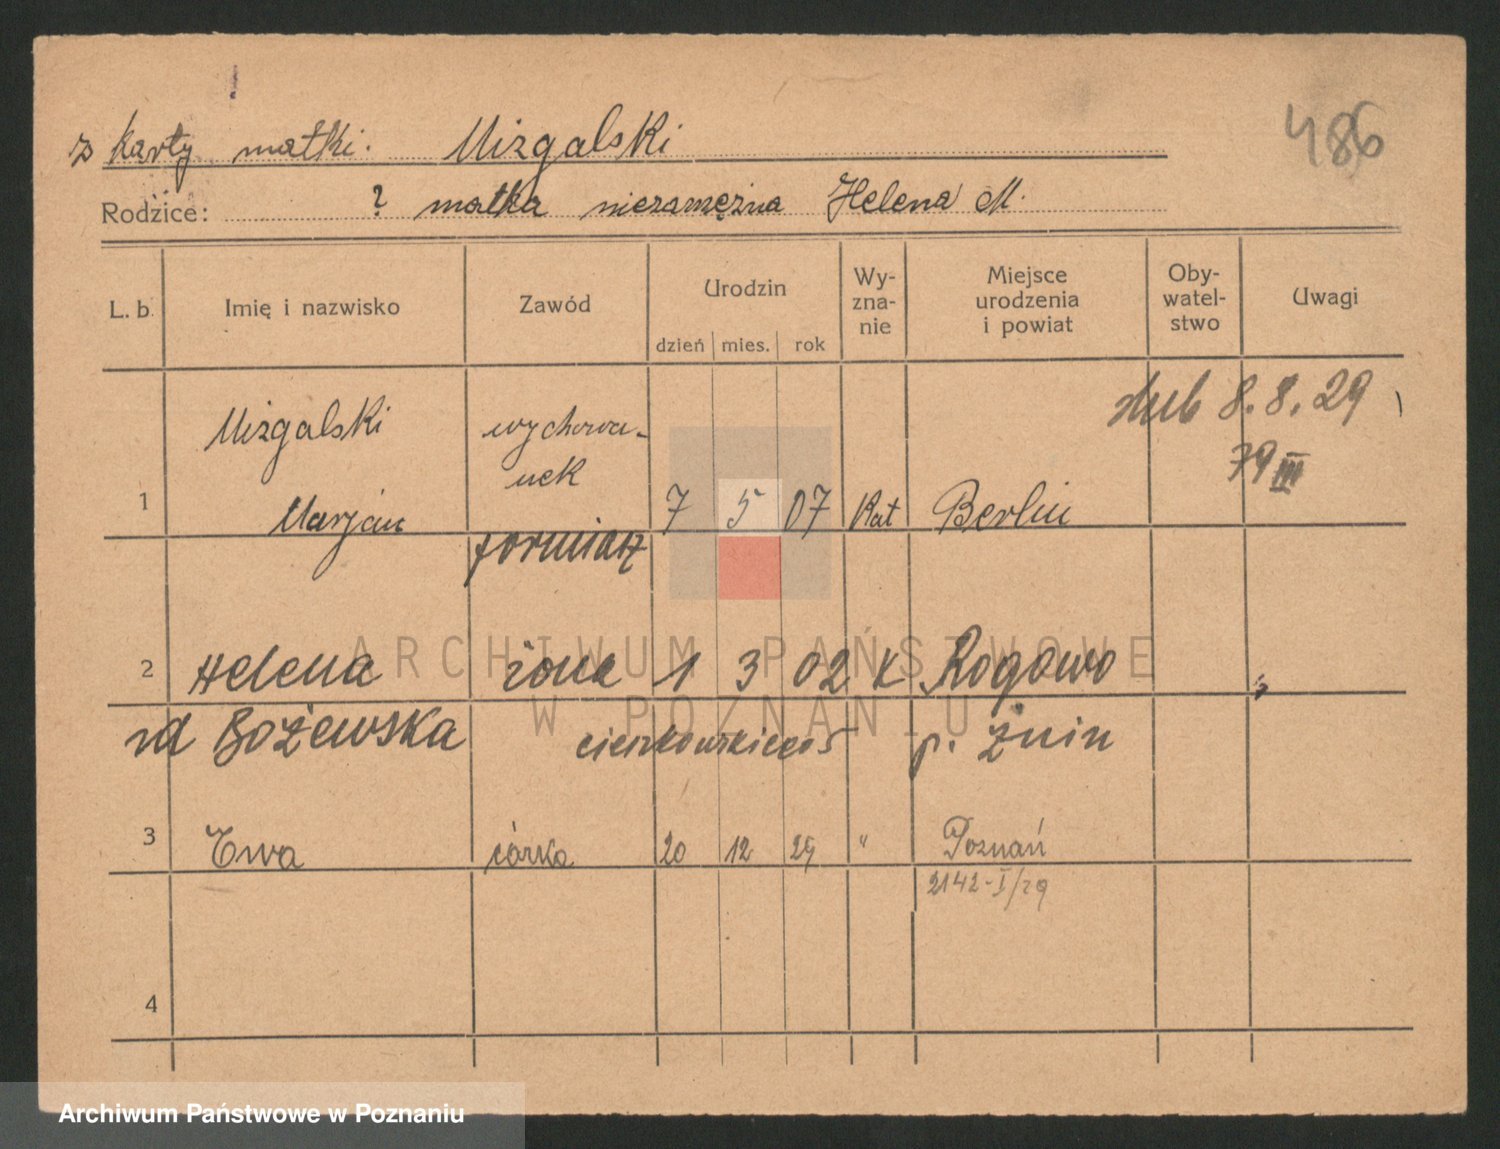 486
z karty matki. Mizgalski
Rodzice: ? matka niezamężna Helena M.
L. b. Imię i nazwisko Zawód Urodzin Wy-zna-nie Miejsce urodzenia i powiat Oby-watel-stwo Uwagi
dzień mies. rok
ślub 8.8.29
79 III
Mizgalski wychowa-
nek
1 Marjan 7 5 07 Kat Berlin
formiarz
ARCHIWUM PAŃSTWOWE
W POZNANIU
2 Helena żona 1 3 02 K Rogowo
Bożewska p. Żnin
3 Ewa córka 20 12 29 " Poznań
2142-I/29
4
Archiwum Państwowe w Poznaniu